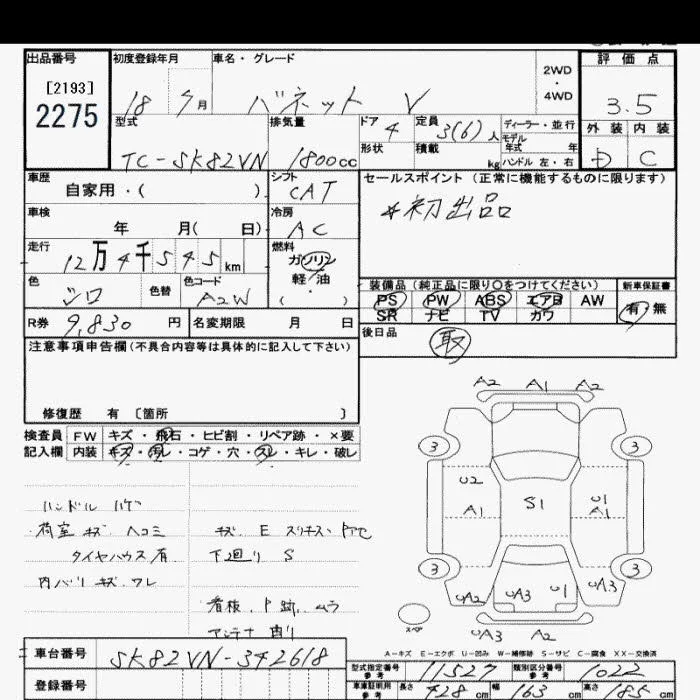 出品番号 初度登録年月 車名・グレード 2WD・4WD 評価点
[2193]
2275
18 7月 バネット V 3.5
型式 排気量 ドア 4 定員 3(6)人 ディーラー・並行 外装 内装
モデル年式 年
形状 積載 kg ハンドル 左・右
TC-SK82VN 1800cc D C
車歴 シフト セールスポイント (正常に機能するものに限ります)
自家用・( ) CAT
*初出品
車検 冷房
年 月( 日) AC
走行 燃料
12万4千545km ガソリン
軽・油
( )
色 色替 色コード 装備品 (純正品に限り○をつけてください) 新車保証書
シロ A2W PS PW ABS エアB AW 有 無
SR ナビ TV カワ
R券 9,830 円 名変期限 月 日 後日品 取
注意事項申告欄(不具合内容等は具体的に記入して下さい)
修復歴 有 〔箇所 〕
検査員 FW キズ・飛石・ヒビ割・リペア跡・×要
記入欄 内装 キズ・汚レ・コゲ・穴・スレ・キレ・破レ
A2 A1 A2
3 3
U2 S1 U1
A1 A1
3 3
UA2 UA3 U1 UA3
UA3 A2
スペア
ハンドル ハゲ
荷室 キズ ヘコミ
タイヤハウス 有
内バリ キズ、ワレ
下廻り S
看板、P跡、ムラ
アンテナ 曲り
A-キズ E-エクボ U-凹み W-補修跡 S-サビ C-腐食 XX-交換済
車台番号 SK82VN-342618
登録番号
型式指定番号 参考 11527 類別区分番号 参考 1022
車庫証明用 参考 長さ 428 cm 幅 163 cm 高さ 185 cm